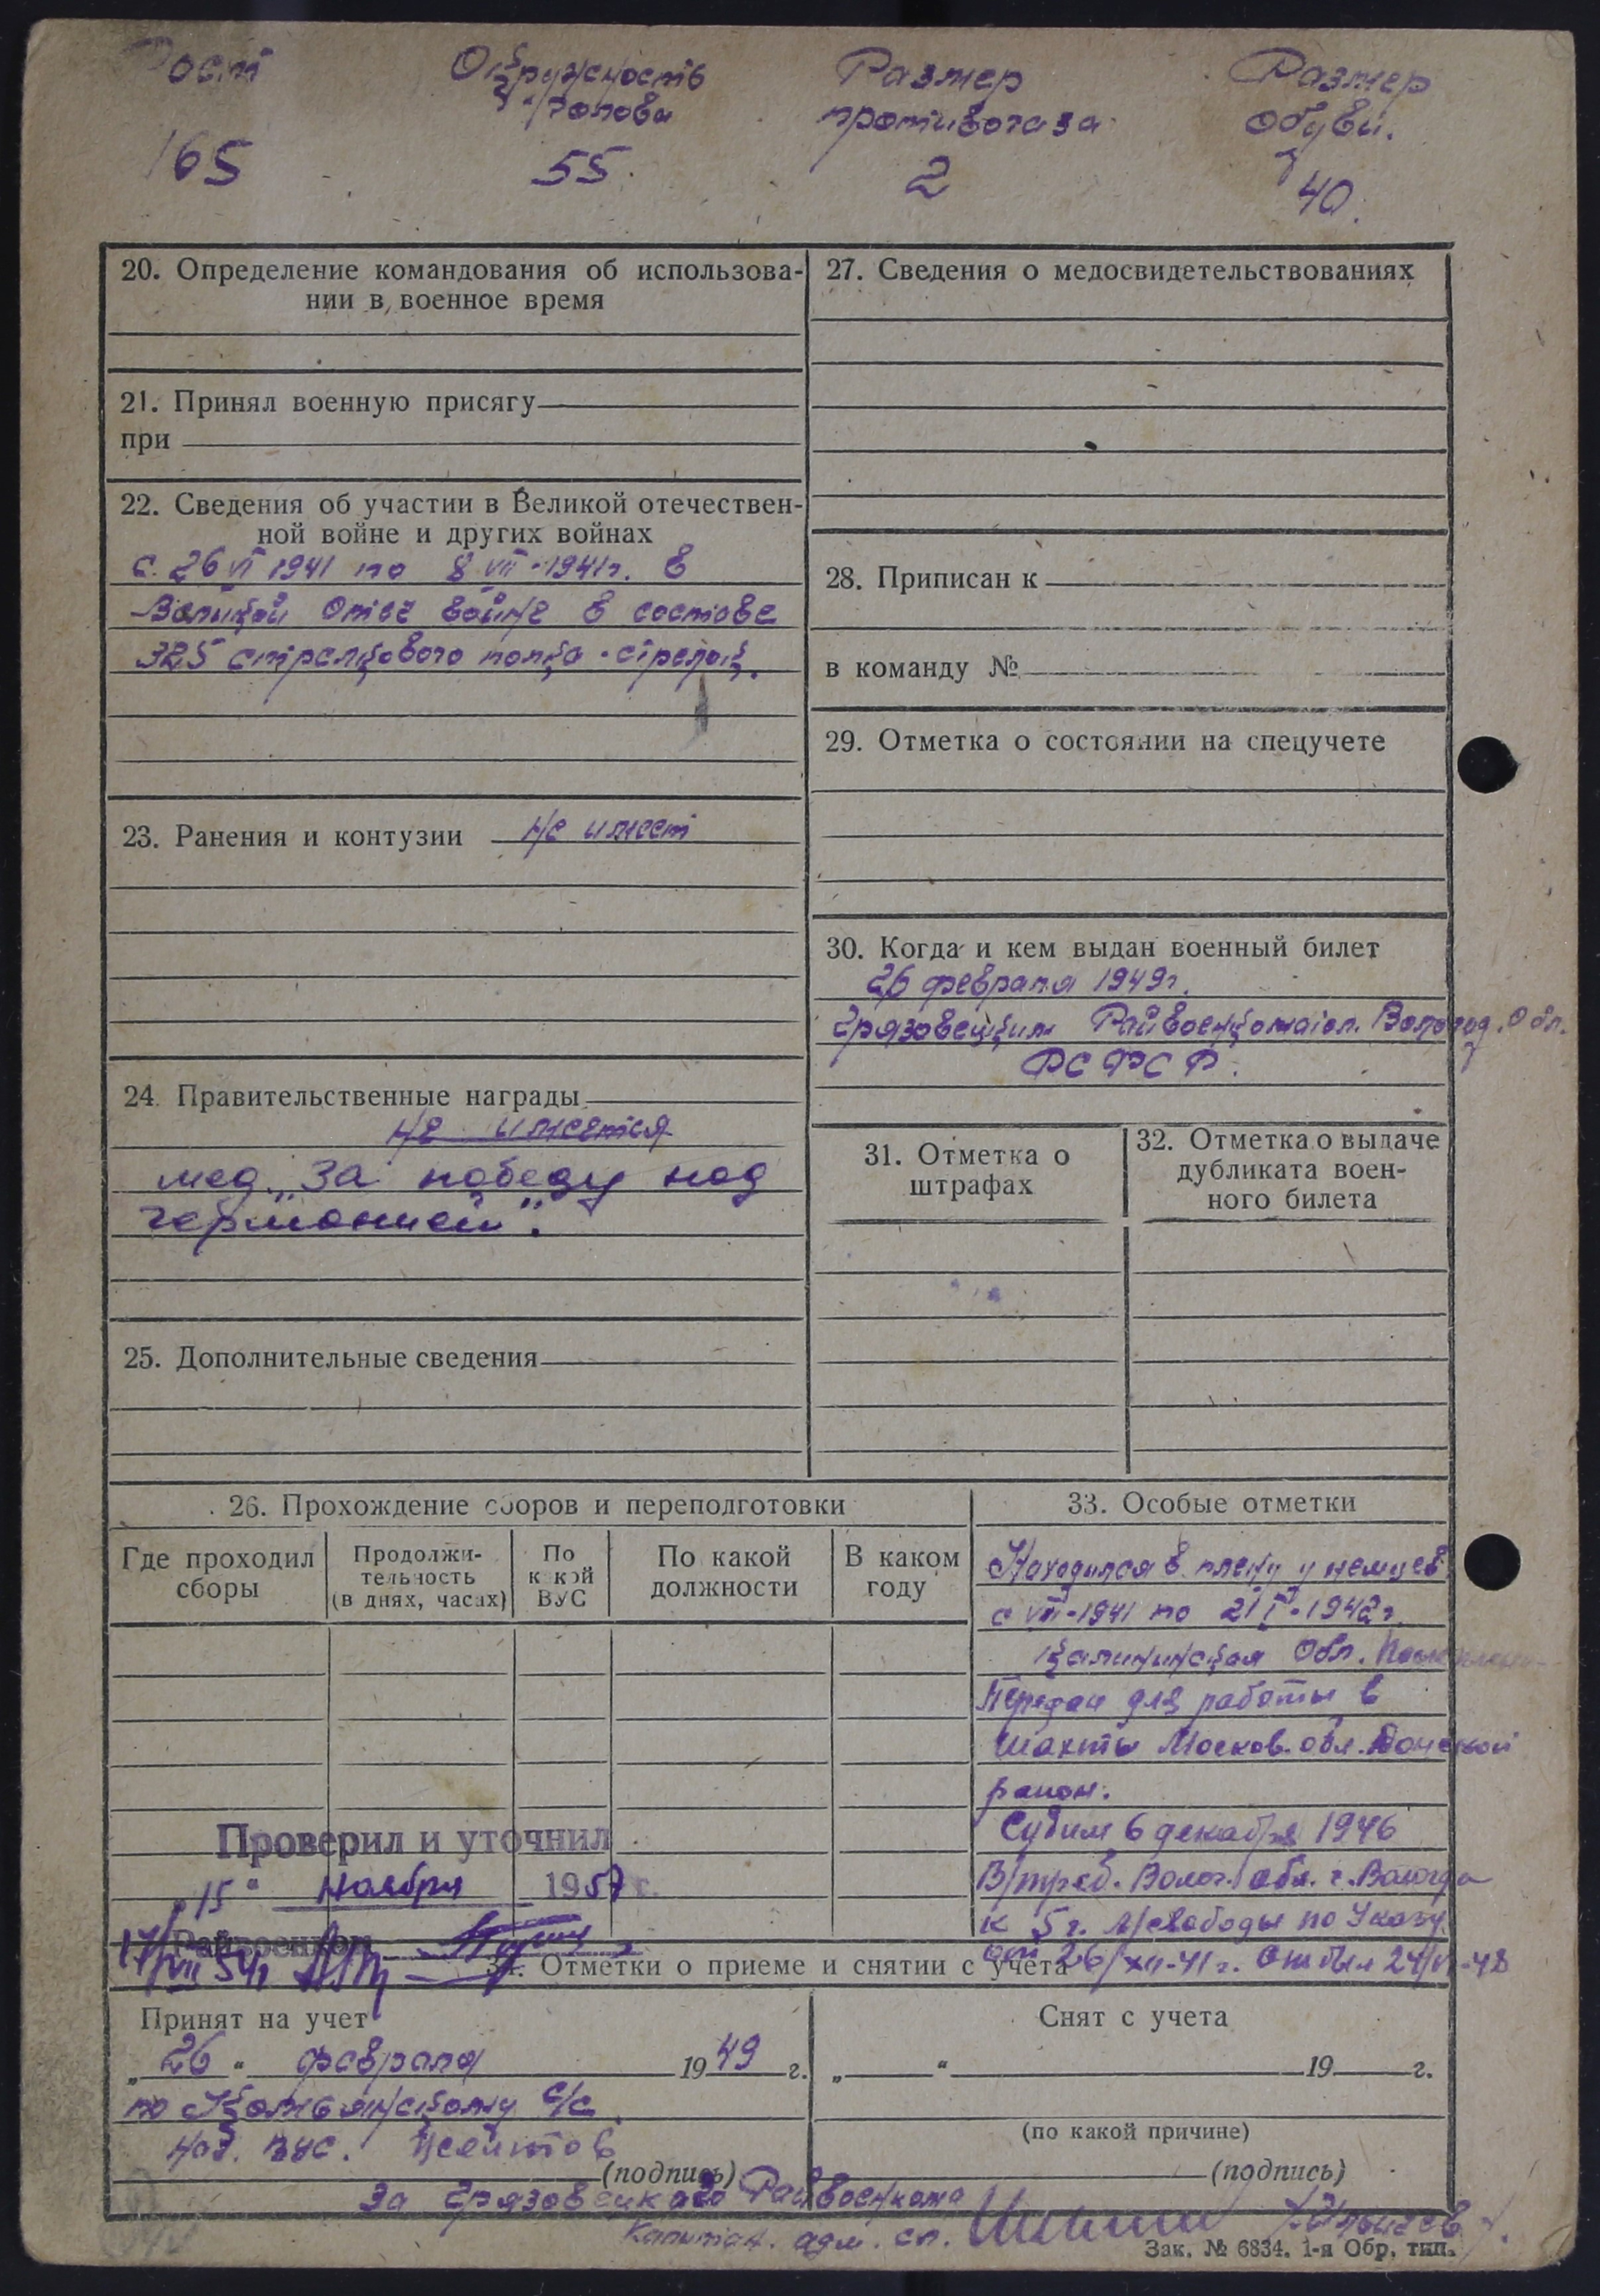 Рост Окружность Размер Размер
головы противогаза обуви.
165 55. 2 40.
20. Определение командования об использова-
нии в военное время
21. Принял военную присягу
при
22. Сведения об участии в Великой отечествен-
ной войне и других войнах
с 26 VI 1941 по 8 VII-1941г. в
Великой Отеч войне в составе
325 стрелкового полка - стрелок.
23. Ранения и контузии не имеет
24. Правительственные награды
не имеется
мед. „За победу над
германией".
25. Дополнительные сведения
27. Сведения о медосвидетельствованиях
28. Приписан к
в команду №
29. Отметка о состоянии на спецучете
30. Когда и кем выдан военный билет
26 февраля 1949г.
Грязовецким Райвоенкоматом. Вологод. Обл.
РСФСР.
31. Отметка о
штрафах
32. Отметка о выдаче
дубликата воен-
ного билета
26. Прохождение сборов и переподготовки
Где проходил
сборы
Продолжи-
тельность
(в днях, часах)
По
какой
ВУС
По какой
должности
В каком
году
Проверил и уточнил
„15" Ноября 1957 г.
Райвоенком
17/VII 54г
33. Особые отметки
Находился в плену у немцев
с VII-1941 по 21 I-1942г.
Калининская Обл.
Передан для работы в
шахты Москов. обл. Донской
район.
Судим 6 декабря 1946
В/триб. Волог. обл. г. Вологда
к 5 г. л/свободы по Указу
от 26/XII-41г. отбыл 24/VI-48
34. Отметки о приеме и снятии с учета
Принят на учет
„26" февраля 1949 г.
по с/с
Нач. ВУС.
(подпись)
За Грязовецкого Райвоенкома
Капитан. адм. сл.
Снят с учета
„ " 19 г.
(по какой причине)
(подпись)
Зак. № 6834. 1-я Обр. тип.